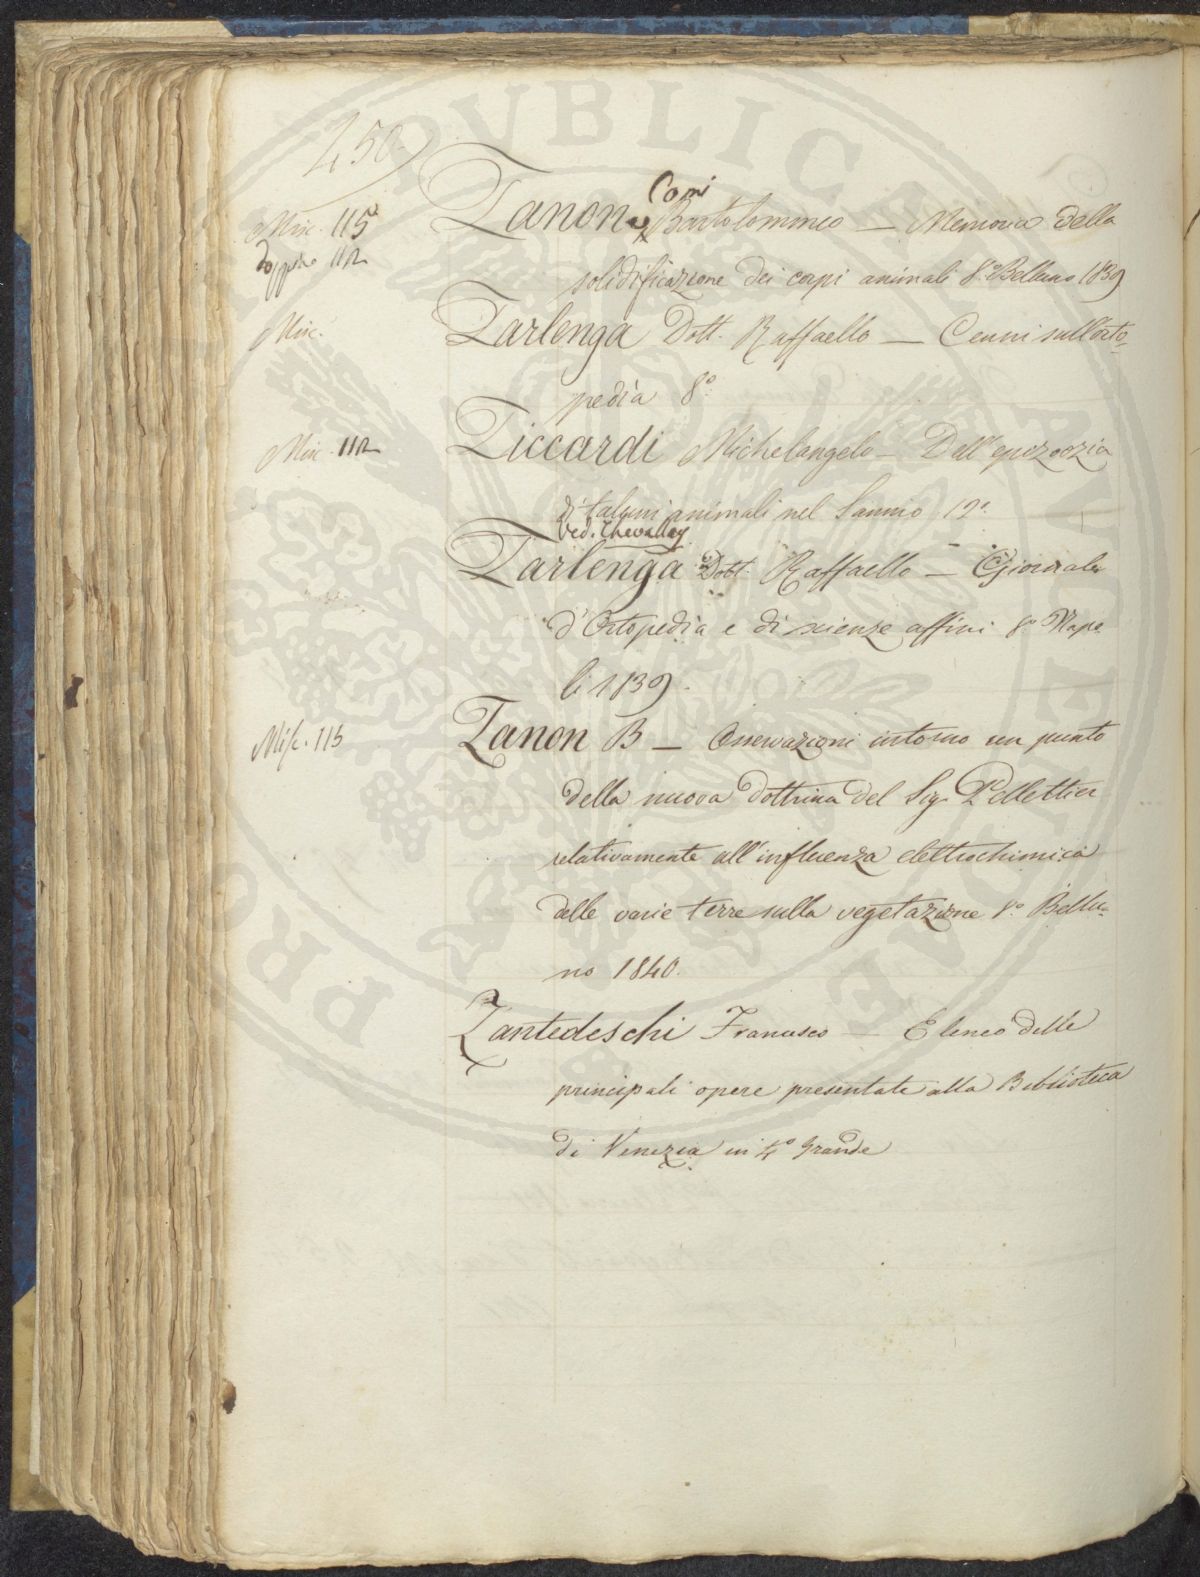 450
Misc. 115
Zanon e Comi Bartolommeo — Memoria della
doppio 112
solidificazione dei corpi animali 8.º Belluno 1839
Misc.
Zarlenga Dott. Raffaello — Cenni sull'orto-
pedia 8º
Misc. 112
Ziccardi Michelangelo — Dell'epizoozia
di taluni animali nel Sannio 12º
Ved. Chevalley
Zarlenga Dott. Raffaello — Giornale
d'Ortopedia e di scienze affini 8º Napo
li 1839.
Misc. 115
Zanon B — Osservazioni intorno un punto
della nuova dottrina del Sig. Pellettier
relativamente all'influenza elettrochimica
delle varie terre sulla vegetazione 8º Bellu-
no 1840.
Zantedeschi Francesco — Elenco delle
principali opere presentate alla Biblioteca
di Venezia in 4º grande